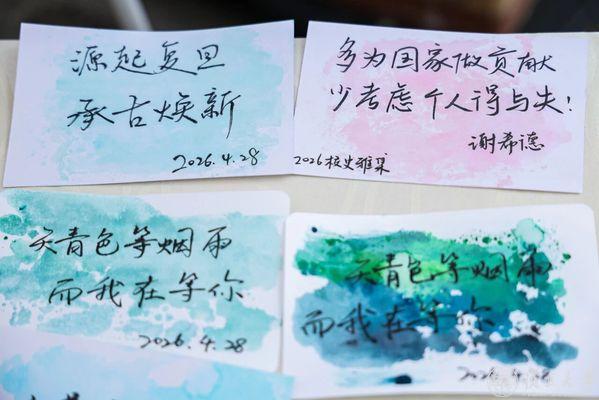 源起复旦
承古焕新
2026.4.28
多为国家做贡献
少考虑个人得与失!
谢希德
2026校史雅集
天青色等烟雨
而我在等你
2026.4.28
天青色等烟雨
而我在等你
2026.4.28